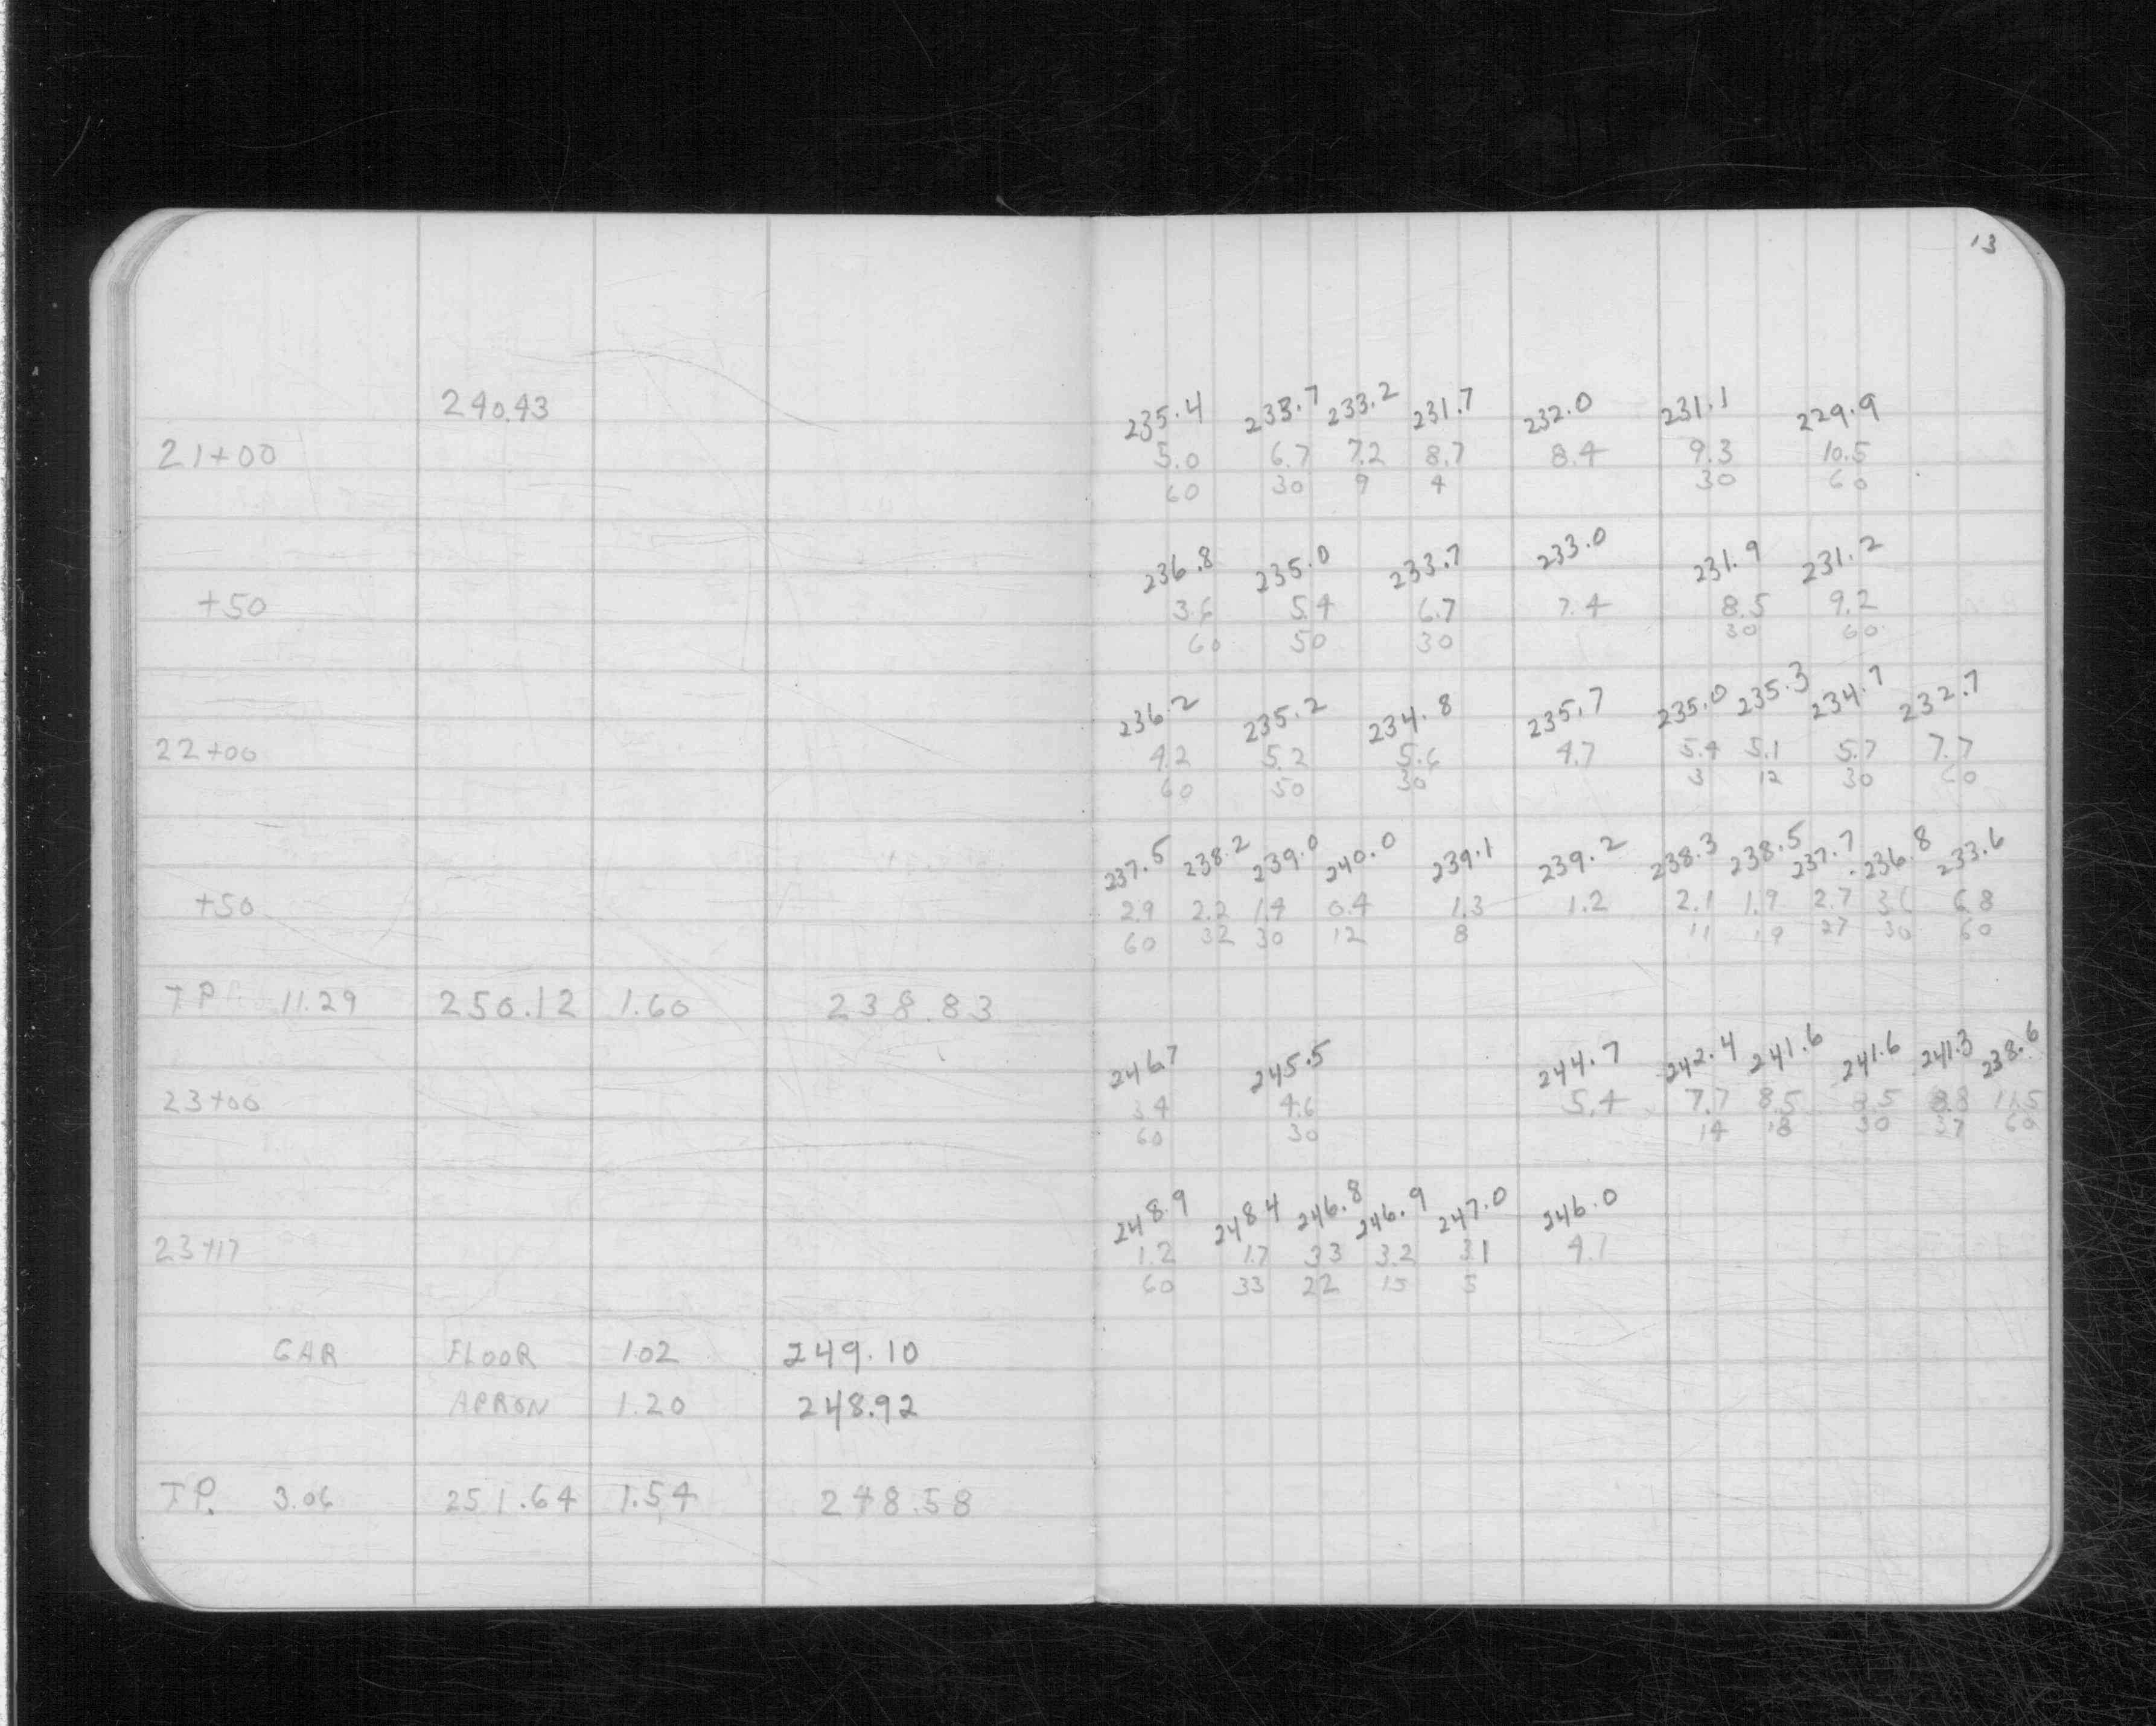 13
240.43
235.4 233.7 233.2 231.7 232.0 231.1 229.9
21+00 5.0 6.7 7.2 8.7 8.4 9.3 10.5
60 30 9 4 30 60
236.8 235.0 233.7 233.0 231.9 231.2
+50 3.6 5.4 6.7 7.4 8.5 9.2
60 50 30 30 60
236.2 235.2 234.8 235.7 235.0 235.3 234.7 232.7
22+00 4.2 5.2 5.6 4.7 5.4 5.1 5.7 7.7
60 50 30 3 12 30 60
237.5 238.2 239.0 240.0 239.1 239.2 238.3 238.5 237.7 236.8 233.6
+50 2.9 2.2 1.4 0.4 1.3 1.2 2.1 1.9 2.7 3.6 6.8
60 32 30 12 8 11 19 27 30 60
T.P. 11.29 250.12 1.60 238.83
246.7 245.5 244.7 242.4 241.6 241.6 241.3 238.6
23+00 3.4 4.6 5.4 7.7 8.5 8.5 8.8 11.5
60 30 14 18 30 37 60
248.9 248.4 246.8 246.9 247.0 246.0
23+17 1.2 1.7 3.3 3.2 3.1 4.1
60 33 22 15 5
GAR FLOOR 1.02 249.10
APRON 1.20 248.92
T.P. 3.06 251.64 1.54 248.58